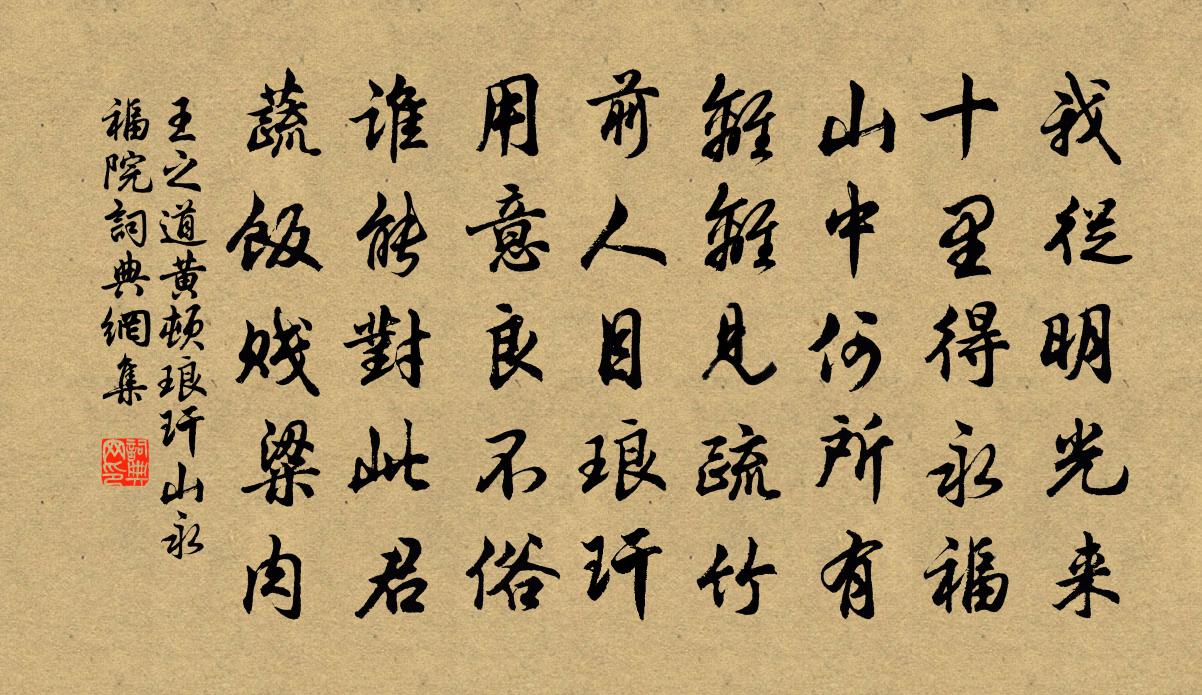 我從明光来
十里得永福
山中何所有
離離見疏竹
前人目琅玕
用意良不俗
谁能對此君
蔬飯賤粱肉
王之道黄頓琅玕山永
福院詞典網集
詞典
网印